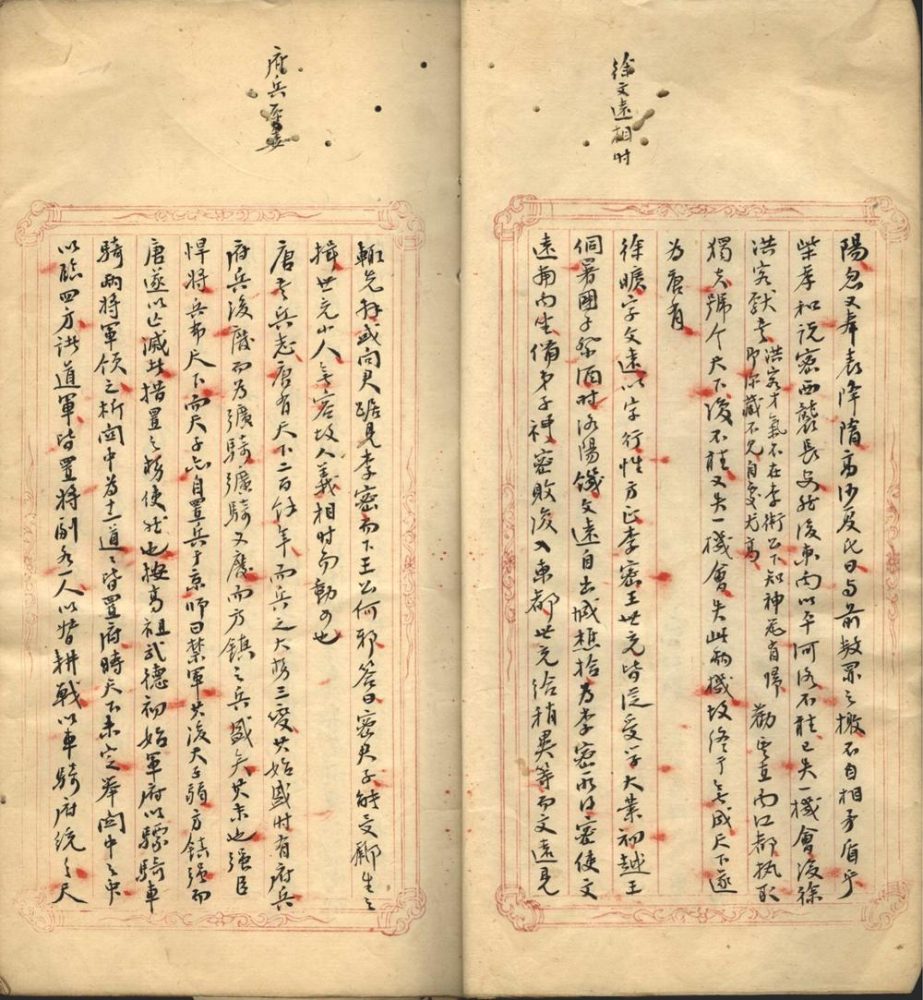 徐文遠相時
陽忽又奉表降隋高沙度此曰与前数罪之檄不自相矛盾乎
柴孝和說密西襲長安然後東向以平河洛不能已失一機會後徐
洪客獻書洪客才氣不在李術公下知神尭有歸即深藏不見自處尤高勸直向江都執取
獨夫號令天下後不能又失一機會失此兩機故終于無成天下遂
為唐有
徐曠字文遠以字行性方正李密王世充皆從受学大業初越王
侗署國子祭酒时洛陽饑文遠自出城樵拾為李密所得密使文
遠南向坐備弟子禮密敗後入東都世充給稍異等而文遠見
府兵
輒先拜或問君踞見李密而下王公何邪答曰密君子能交酈生之
揖世充小人無容故人義相时而動可也
唐書兵志唐有天下二百餘年而兵之大势三變其始盛时有府兵
府兵後廢而為彍騎彍騎又廢而方鎮之兵盛矣其末也强臣
悍將兵布天下而天子亦自置兵于京師曰禁軍其後天子弱方鎮强而
唐遂以亡滅此措置之势使然也按高祖武德初始軍府以驃騎車
騎兩將軍領之析関中為十二道道皆置府時天下未定舉関中之衆
以臨四方諸道軍皆置將副各一人以督耕戰以車騎府統之天